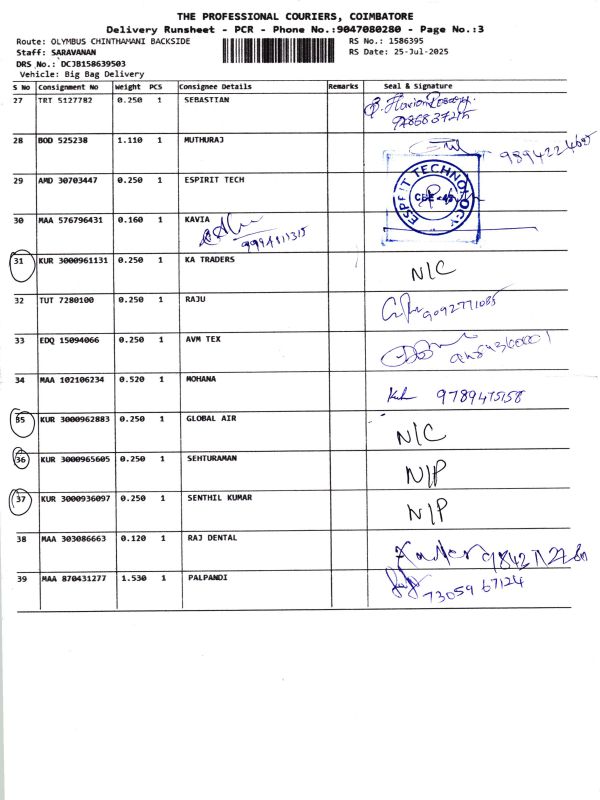 THE PROFESSIONAL COURIERS, COIMBATORE
Delivery Runsheet - PCR - Phone No.:9047080280 - Page No.:3
Route: OLYMBUS CHINTHAMANI BACKSIDE RS No.: 1586395
Staff: SARAVANAN RS Date: 25-Jul-2025
DRS No.: DCJB158639503
Vehicle: Big Bag Delivery
S No Consignment No Weight PCS Consignee Details Remarks Seal & Signature
27 TRT 5127782 0.250 1 SEBASTIAN
28 BOD 525238 1.110 1 MUTHURAJ
29 AMD 30703447 0.250 1 ESPIRIT TECH ESPRIT TECHNOLOGY
30 MAA 576796431 0.160 1 KAVIA
31 KUR 3000961131 0.250 1 KA TRADERS N/C
32 TUT 7280100 0.250 1 RAJU 9092771085
33 EDQ 15094066 0.250 1 AVM TEX
34 MAA 102106234 0.520 1 MOHANA 9789475158
35 KUR 3000962883 0.250 1 GLOBAL AIR N/C
36 KUR 3000965605 0.250 1 SEHTURAMAN N/P
37 KUR 3000936097 0.250 1 SENTHIL KUMAR N/P
38 MAA 303086663 0.120 1 RAJ DENTAL
39 MAA 870431277 1.530 1 PALPANDI 73059 67124